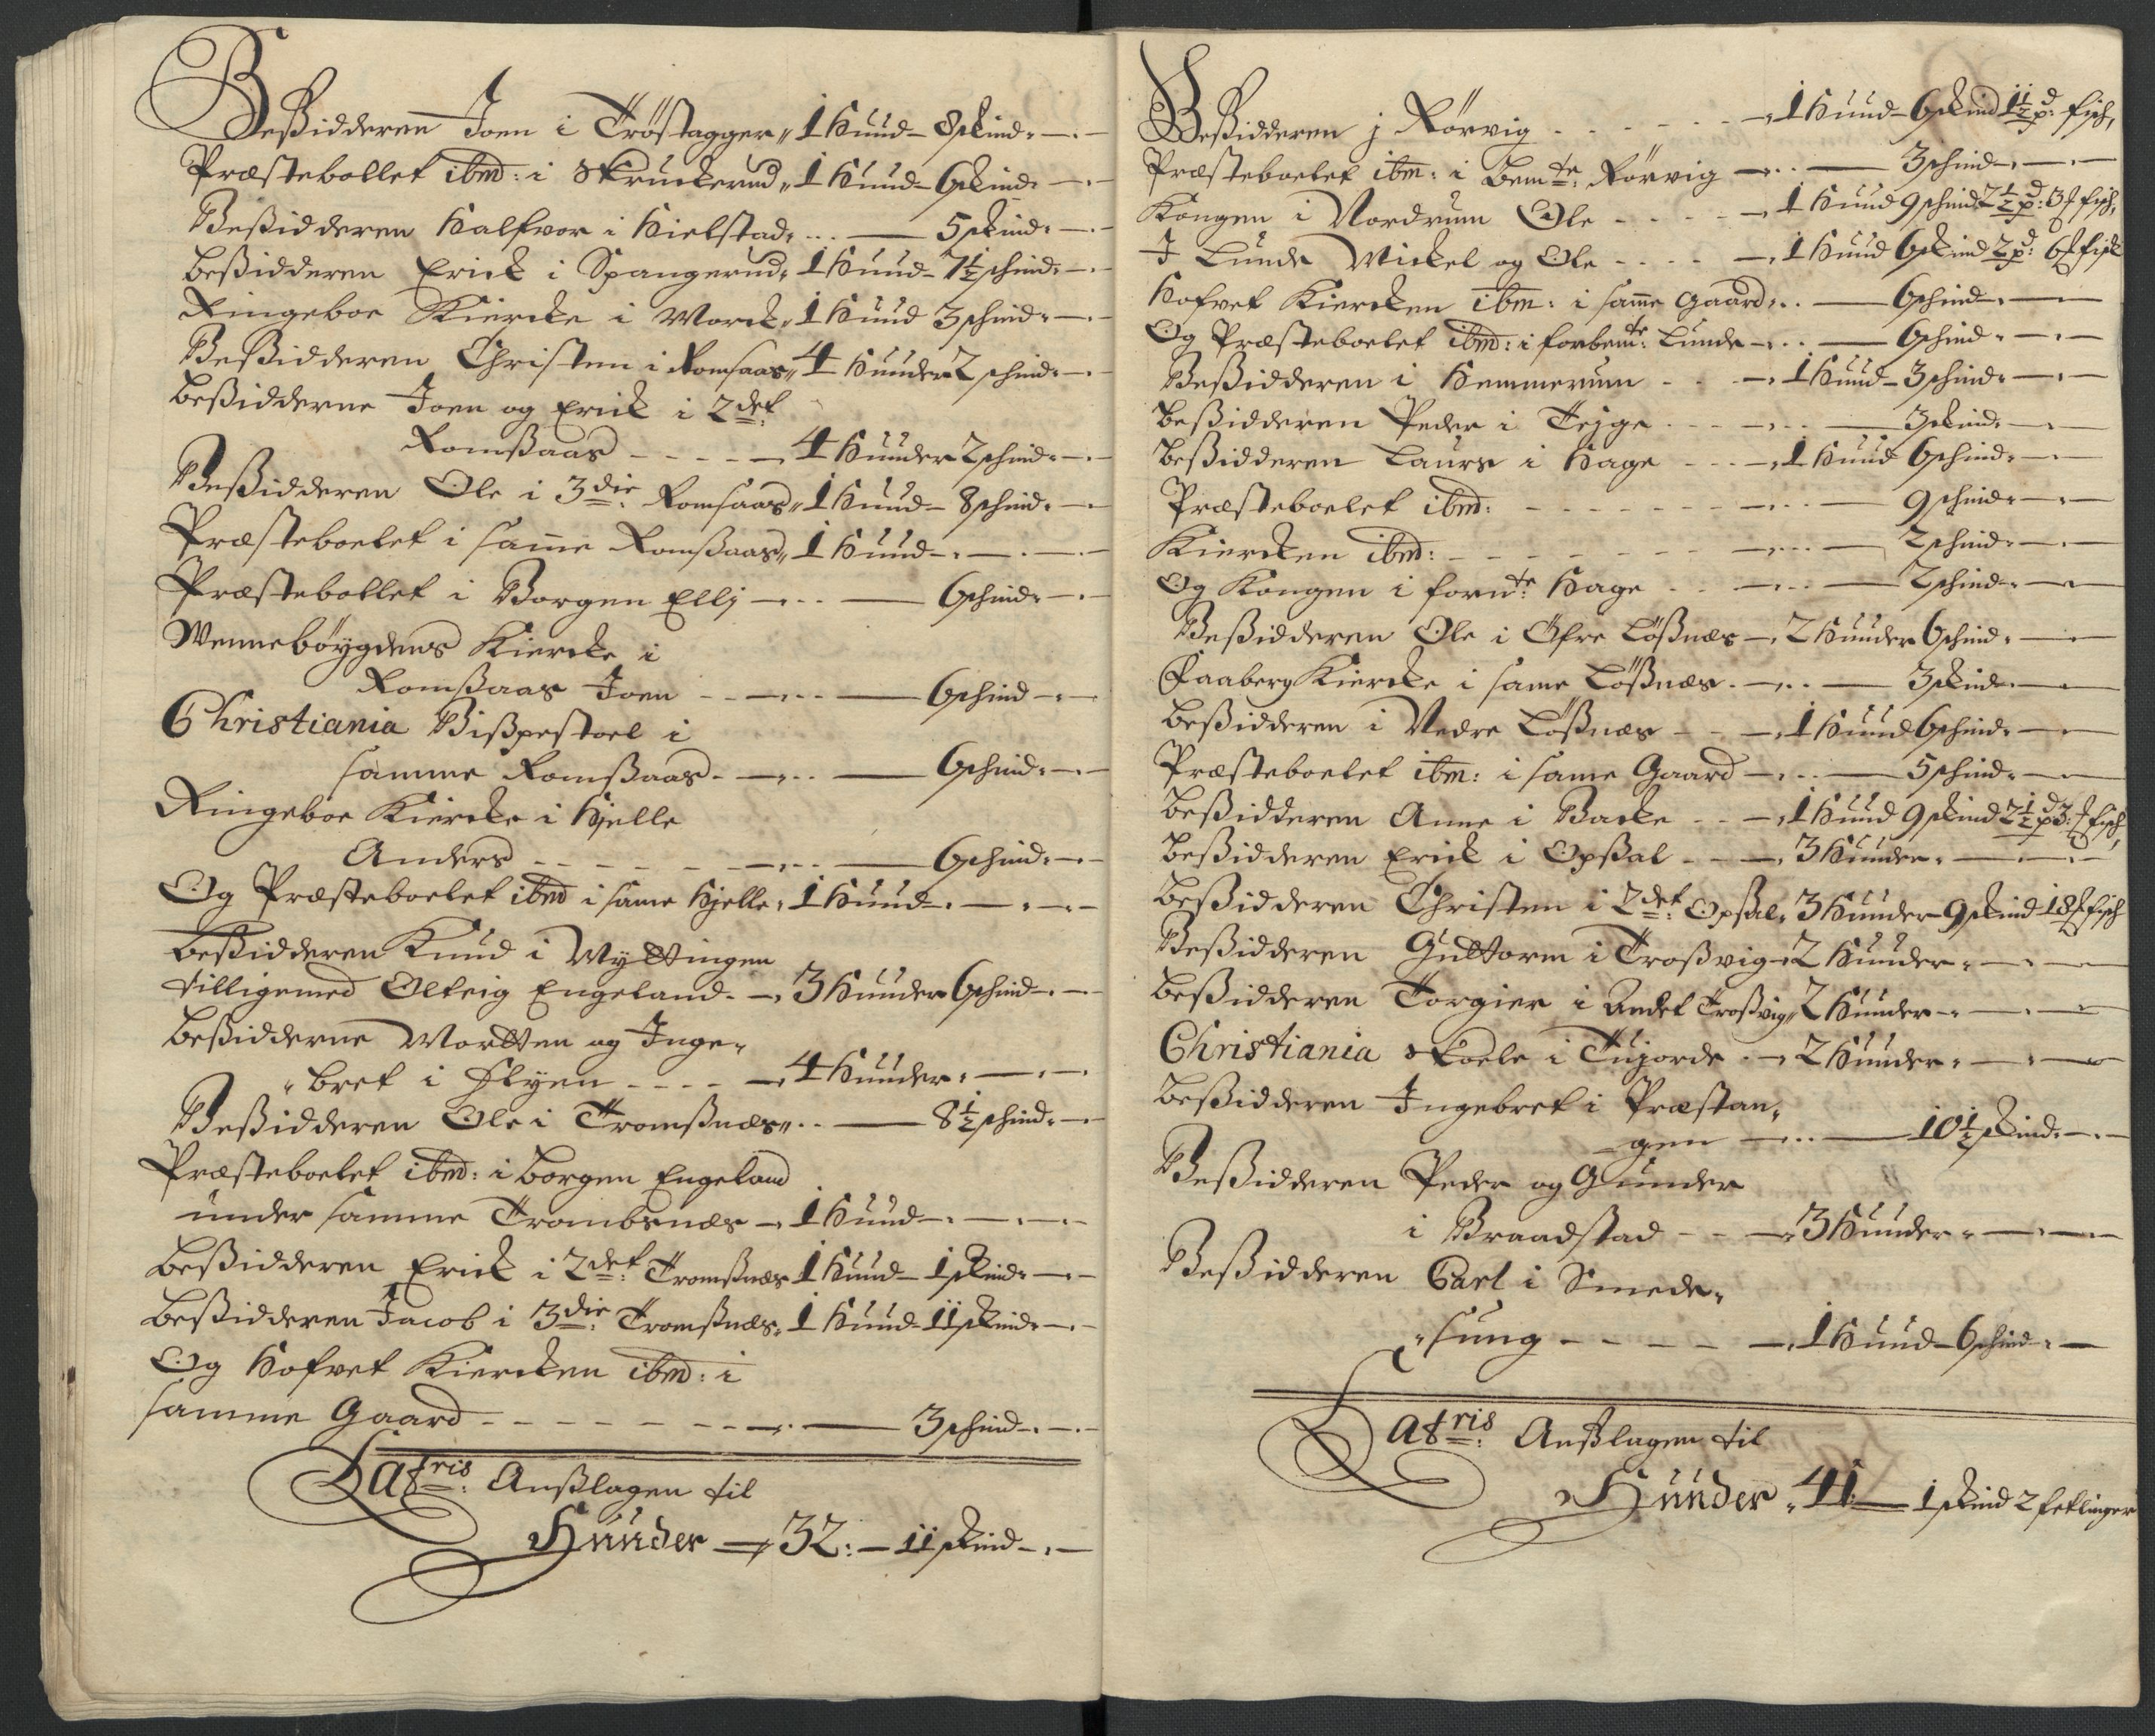 Beßidderen Joen i Tröstagger,, 1 Huud - 8 skind
Præstebollet ibm: i Skruckerud,, 1 Huud - 6 skind
Beßidderen Halfvor i Kielstad, 5 skind
Beßidderen Erick i Spangerud, 1 Huud - 7½ schind
Ringeboe Kiercke i Morck, 1 Huud 3 schind
Beßidderen Christen i Romsaas,, 4 Huuder 2 schind
Beßidderne Joen og Erick i 2det
Romßaas - - - - 4 Huuder 2 schind
Beßidderen Ole i 3die Romsaas,, 1 Huud - 8 schind
Præsteboelet i samme Romßaas,, 1 Huud
Præstebollet i Borgen Ellj 6 schind
Wennebøygdens Kiercke i
Romßaas Joen 6 schind
Christiania Bißpestoel i
samme Romßaas 6 schind
Ringeboe Kiercke i Hjelle
Anders 6 schind
Og Præsteboelet ibm i same Hjelle, 1 Huud
Beßidderen Knud i Myttingen
tilligemed Olteig Engeland 3 Huuder 6 schind
Beßidderne Mortten og Inge-
bret i Flyen - - - - 4 Huuder
Beßidderen Ole i Tromßnæs,, 8½ schind
Præsteboelet ibm: i borgen Engeland
under samme Trombsnæs 1 Huud
Beßidderen Erick i 2det Tromßnæs 1 Huud - 1 skind
Beßidderen Jacob i 3die Tromßnæs, 1 Huud - 11 skind
Og Hofvet Kiercken ibm: i
samme Gaard 3 schind
Latris Anßlagen til
Huuder 32: 11 skind
Beßidderen j Rörvig 1 Huud - 6 skind 1½ pd: fisch,
Præsteboelet ibm: i bemte: Rörvig 3 schind
Kongen i Nordrum Ole 1 Huud 9 schind 2½ pd: 3 fisch,
I Lunde Mickel og Ole 1 Huud 6 skind 2 pd: 6 fisk
Hofvet Kiercken ibm: i same gaard 6 schind
Og Præsteboelet ibm: i forbemte: Lunde 6 schind
Beßidderen i Hemmerum 1 Huud - 3 schind
Beßidderen Peder i Tejge 3 skind
Beßidderen Laurs i Hage 1 Huud 6 schind
Præsteboelet ibm: 9 schind
Kiercken ibm: 2 schind
Og Kongen i fornte: Hage 2 schind
Beßidderen Ole i Öfre Lößnæs 2 Huuder 6 schind
Faaberg Kiercke i same Lößnæs 3 skind
Beßidderen i Nedre Lößnæs 1 Huud 6 schind
Præsteboelet ibm: i same Gaard 5 schind
Beßidderen Anne i Backe 1 Huud 9 skind 2½ pd 3 fisch,
Beßidderen Erick i Opßal 3 Huuder
Beßidderen Christen i 2det Opßal, 3 Huuder 9 skind 18 fisch
Beßidderen Guttorm i Troßvig 2 Huuder
Beßidderen Torgier i Andet Troßvig,, 2 Huuder
Christiania Skoele i Tujorde 2 Huuder
Beßidderen Ingebret i Præstan,
gen 10½ skind
Beßidderen Peder og Gunder
i Braadstad 3 Huuder
Beßidderen Carl i Smede,
sung 1 Huud - 6 schind
Latris Anßlagen til
Huuder 41 1 skind 2 fetlinger